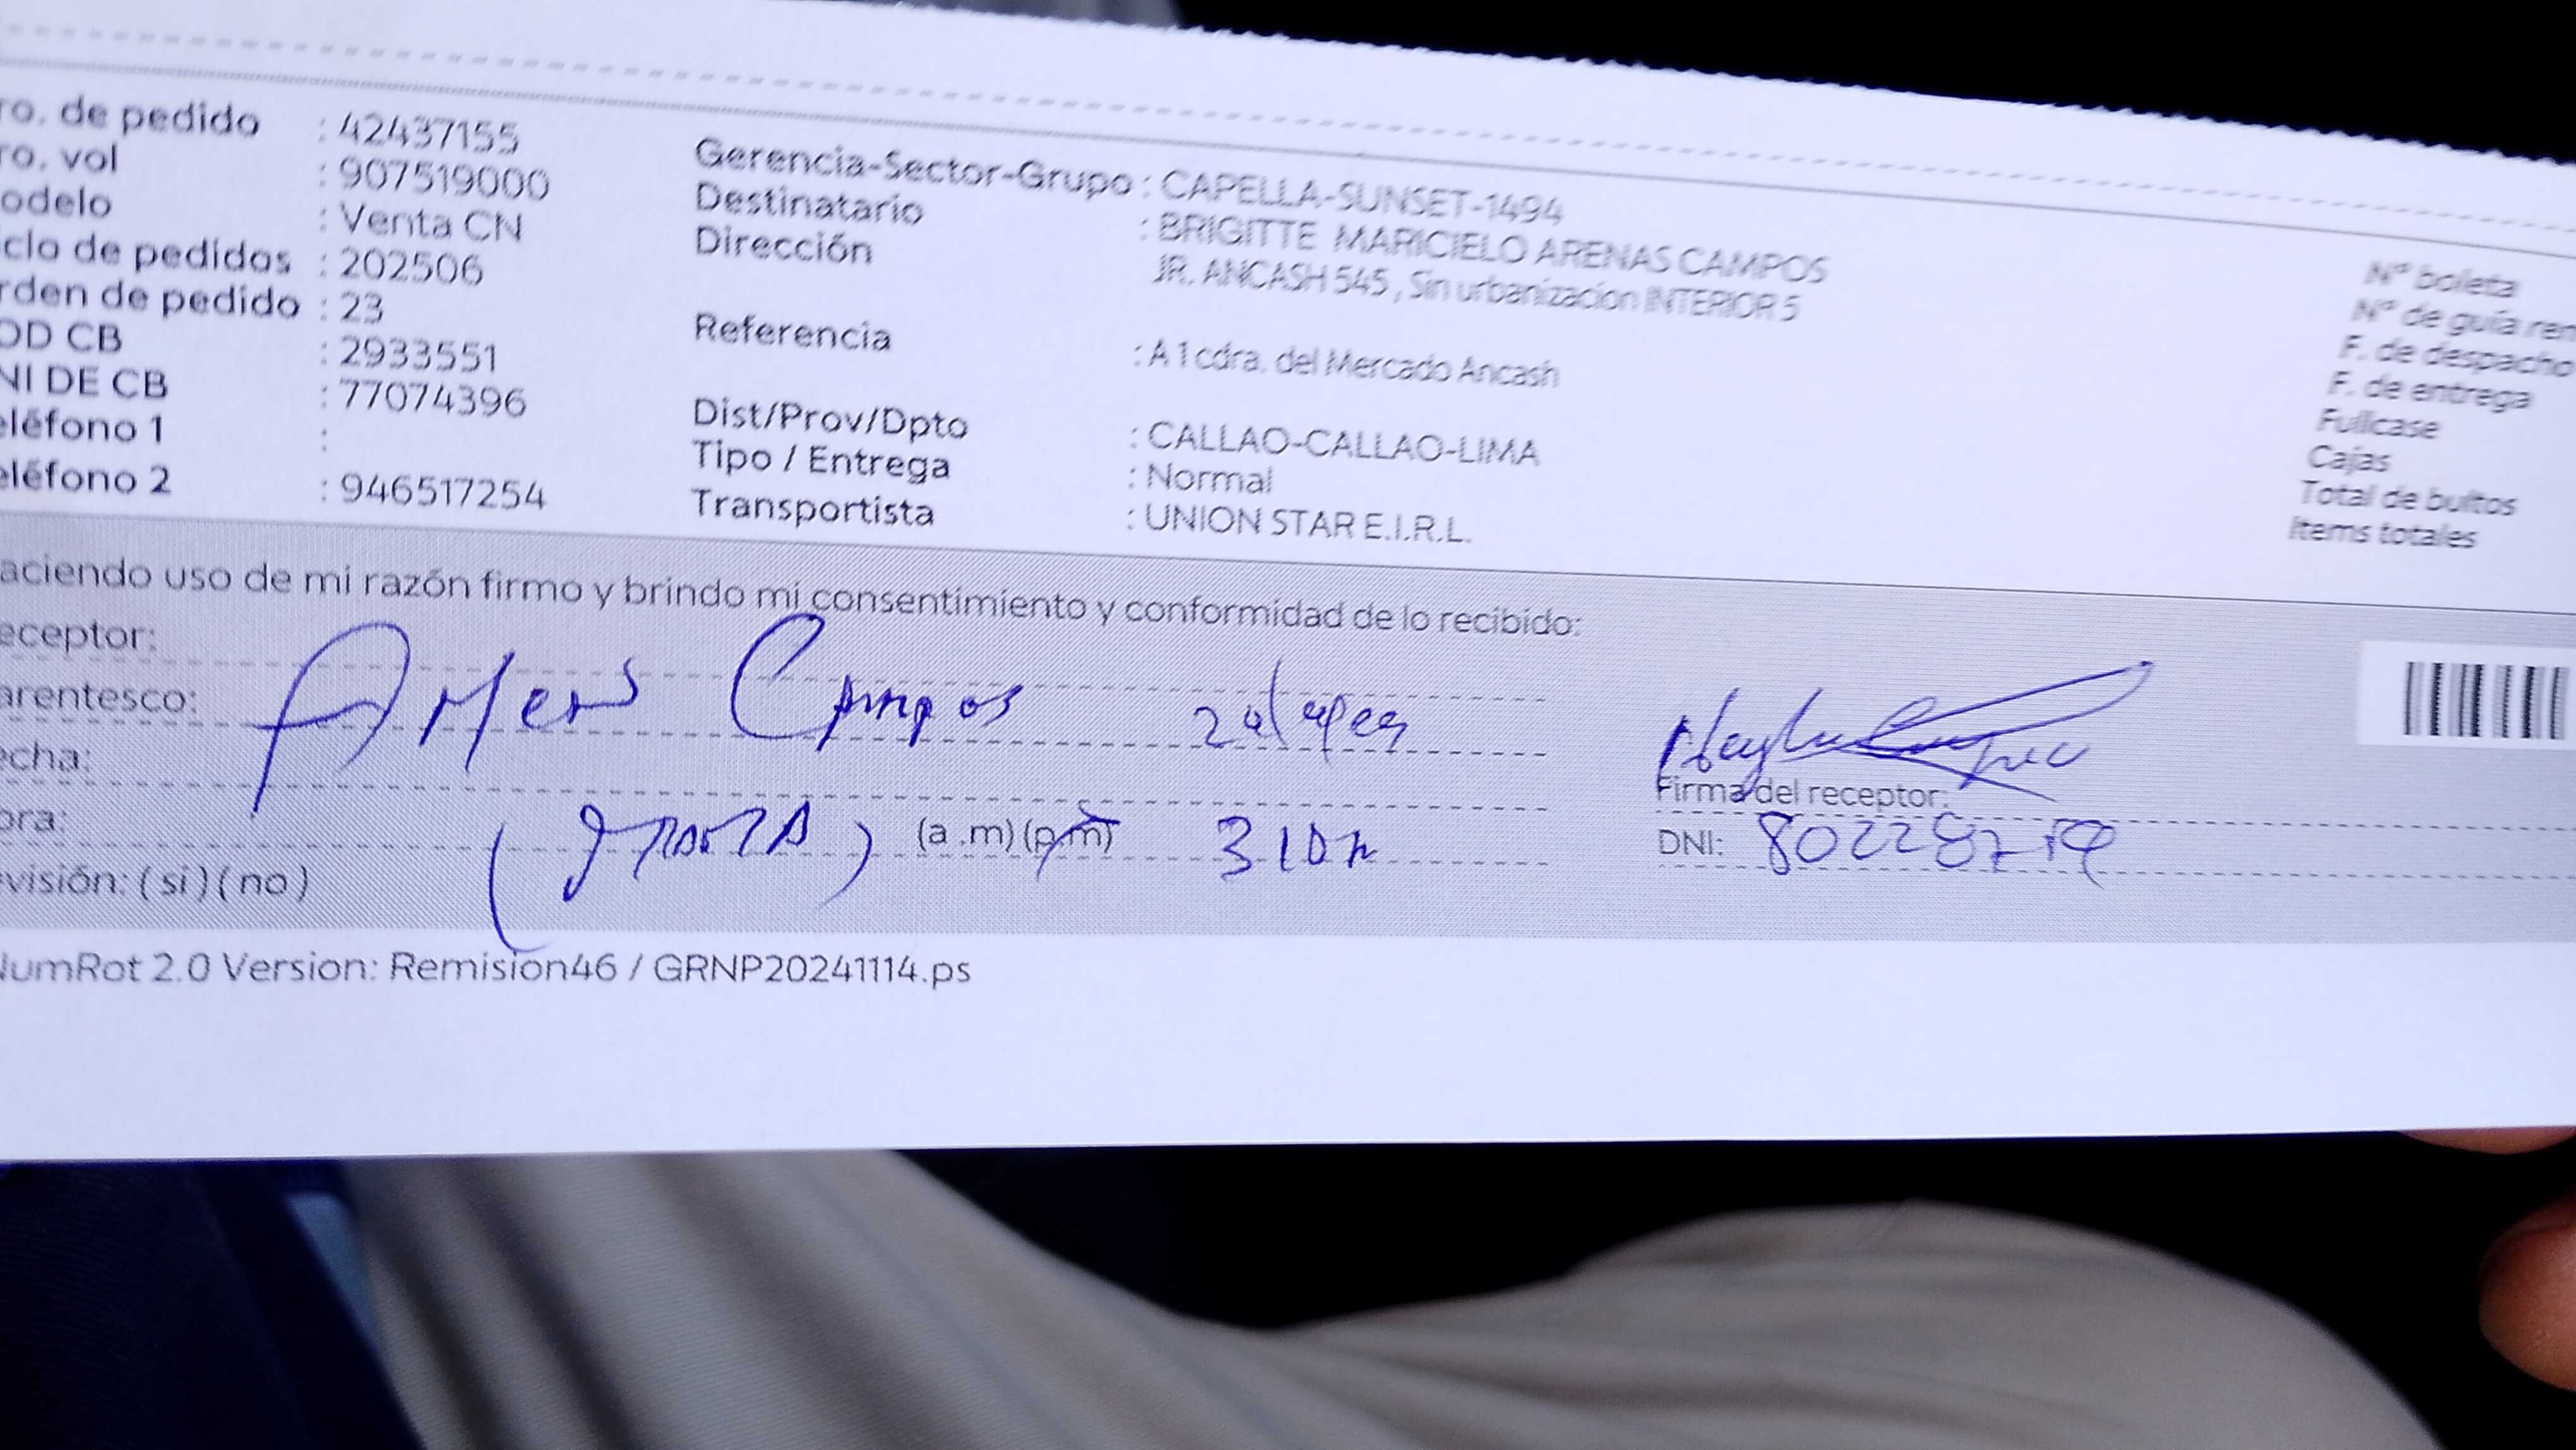 ro. de pedido : 42437155
ro. vol : 907519000
odelo : Venta CN
clo de pedidos : 202506
rden de pedido : 23
OD CB : 2933551
NI DE CB : 77074396
eléfono 1 :
eléfono 2 : 946517254
Gerencia-Sector-Grupo : CAPELLA-SUNSET-1494
Destinatario : BRIGITTE MARICIELO ARENAS CAMPOS
Dirección JR. ANCASH 545 , Sin urbanizacion INTERIOR 5
Referencia : A 1 cdra. del Mercado Ancash
Dist/Prov/Dpto : CALLAO-CALLAO-LIMA
Tipo / Entrega : Normal
Transportista : UNION STAR E.I.R.L.
N° boleta
N° de guía rem
F. de despacho
F. de entrega
Fullcase
Cajas
Total de bultos
Items totales
aciendo uso de mi razón firmo y brindo mi consentimiento y conformidad de lo recibido:
eceptor:
arentesco: Campos
echa:
ora: (a .m) (p.m) 310
Firma del receptor:
DNI:
evisión: ( si ) ( no )
NumRot 2.0 Version: Remision46 / GRNP20241114.ps